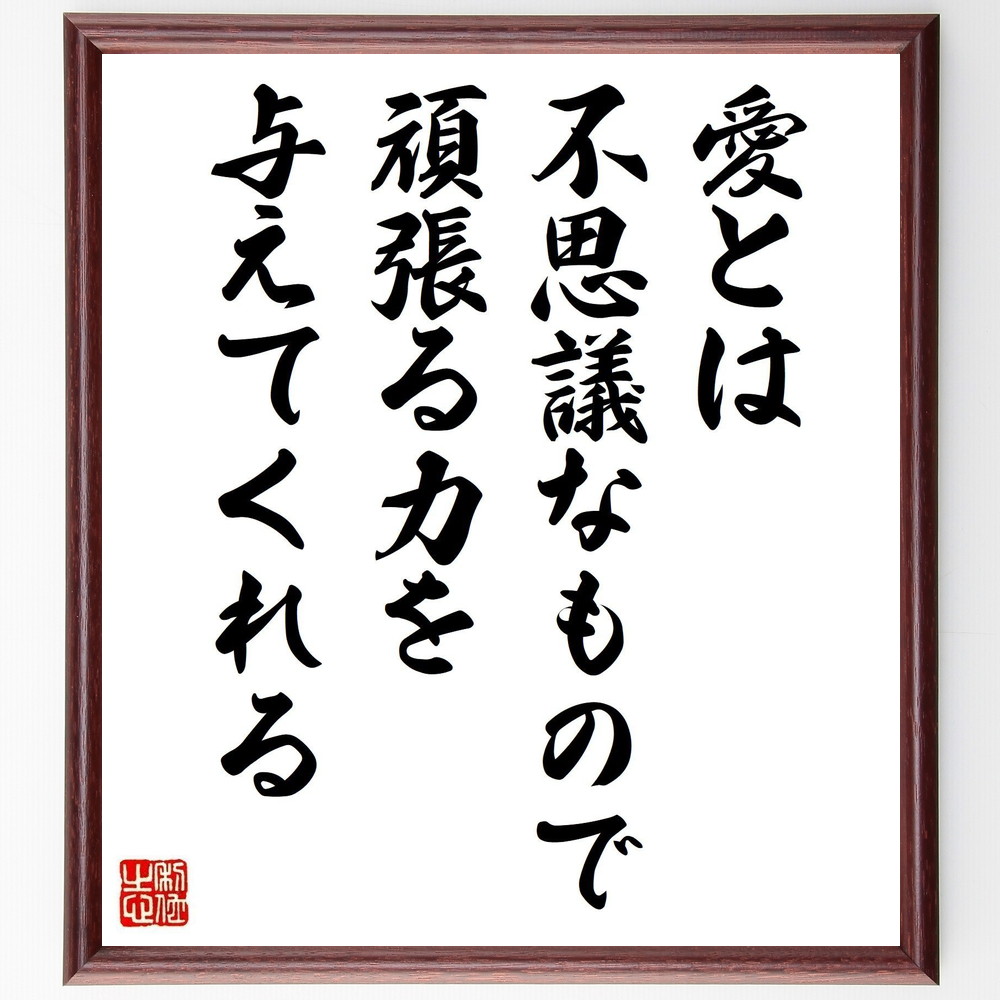 愛とは
不思議なもので
頑張る力を
与えてくれる